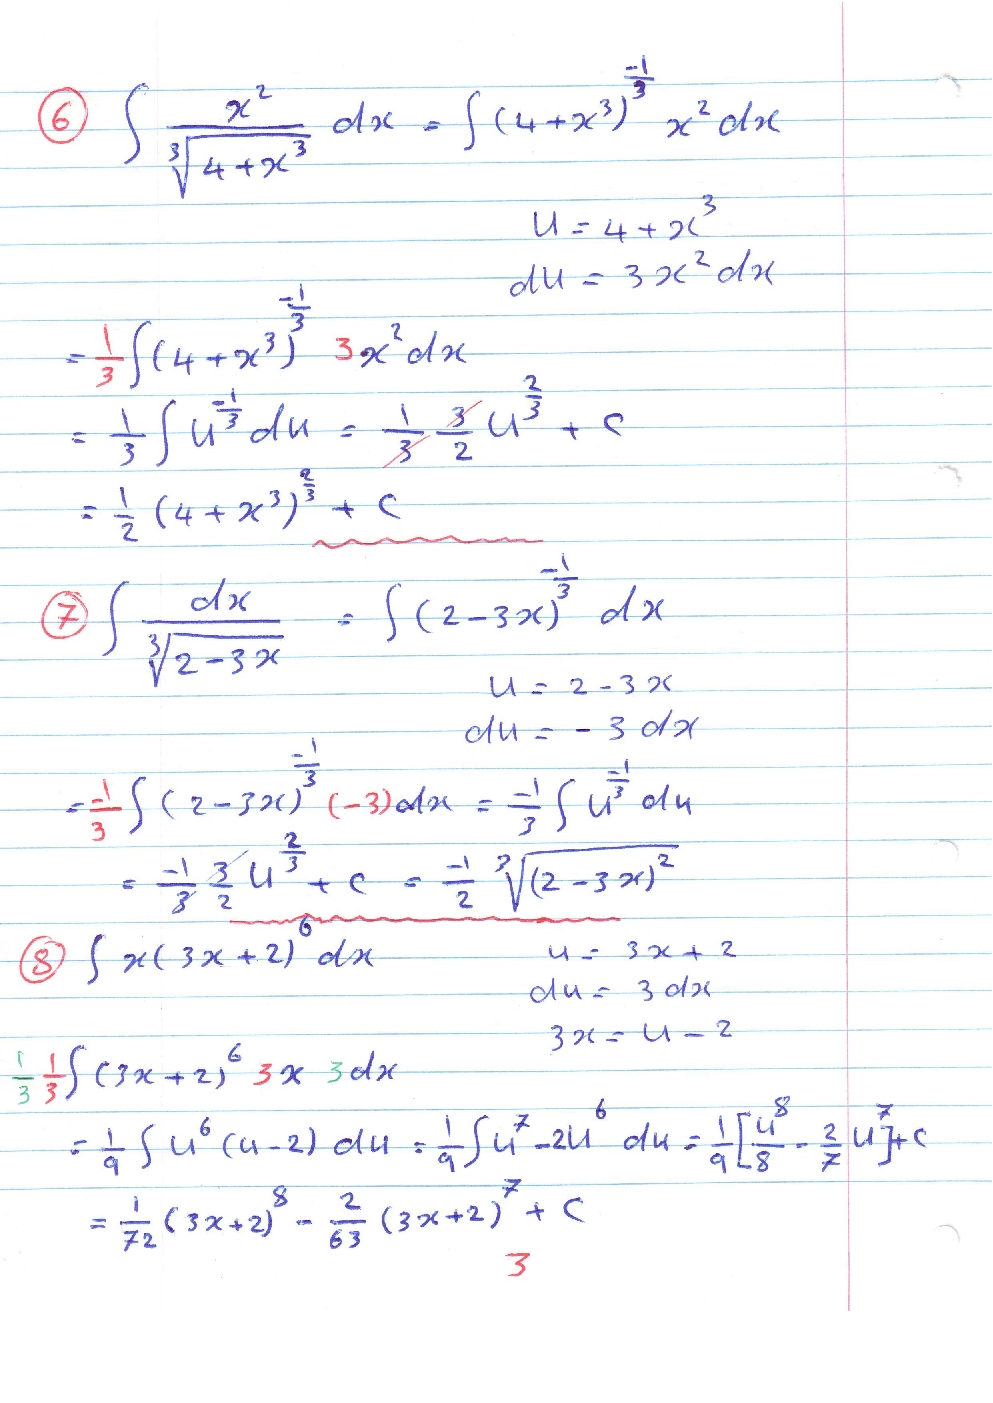 ⑥ ∫ x² / ∛(4+x³) dx = ∫ (4+x³)^(-1/3) x² dx
u = 4+x³
du = 3x² dx
= 1/3 ∫ (4+x³)^(-1/3) 3x² dx
= 1/3 ∫ u^(-1/3) du = 1/3 3/2 u^(2/3) + C
= 1/2 (4+x³)^(2/3) + C
⑦ ∫ dx / ∛(2-3x) = ∫ (2-3x)^(-1/3) dx
u = 2-3x
du = -3 dx
= -1/3 ∫ (2-3x)^(-1/3) (-3) dx = -1/3 ∫ u^(-1/3) du
= -1/3 3/2 u^(2/3) + C = -1/2 ∛((2-3x)²)
⑧ ∫ x(3x+2)⁶ dx u = 3x+2
du = 3 dx
3x = u-2
1/3 1/3 ∫ (3x+2)⁶ 3x 3dx
= 1/9 ∫ u⁶ (u-2) du = 1/9 ∫ u⁷ - 2u⁶ du = 1/9 [u⁸/8 - 2/7 u⁷] + C
= 1/72 (3x+2)⁸ - 2/63 (3x+2)⁷ + C
3